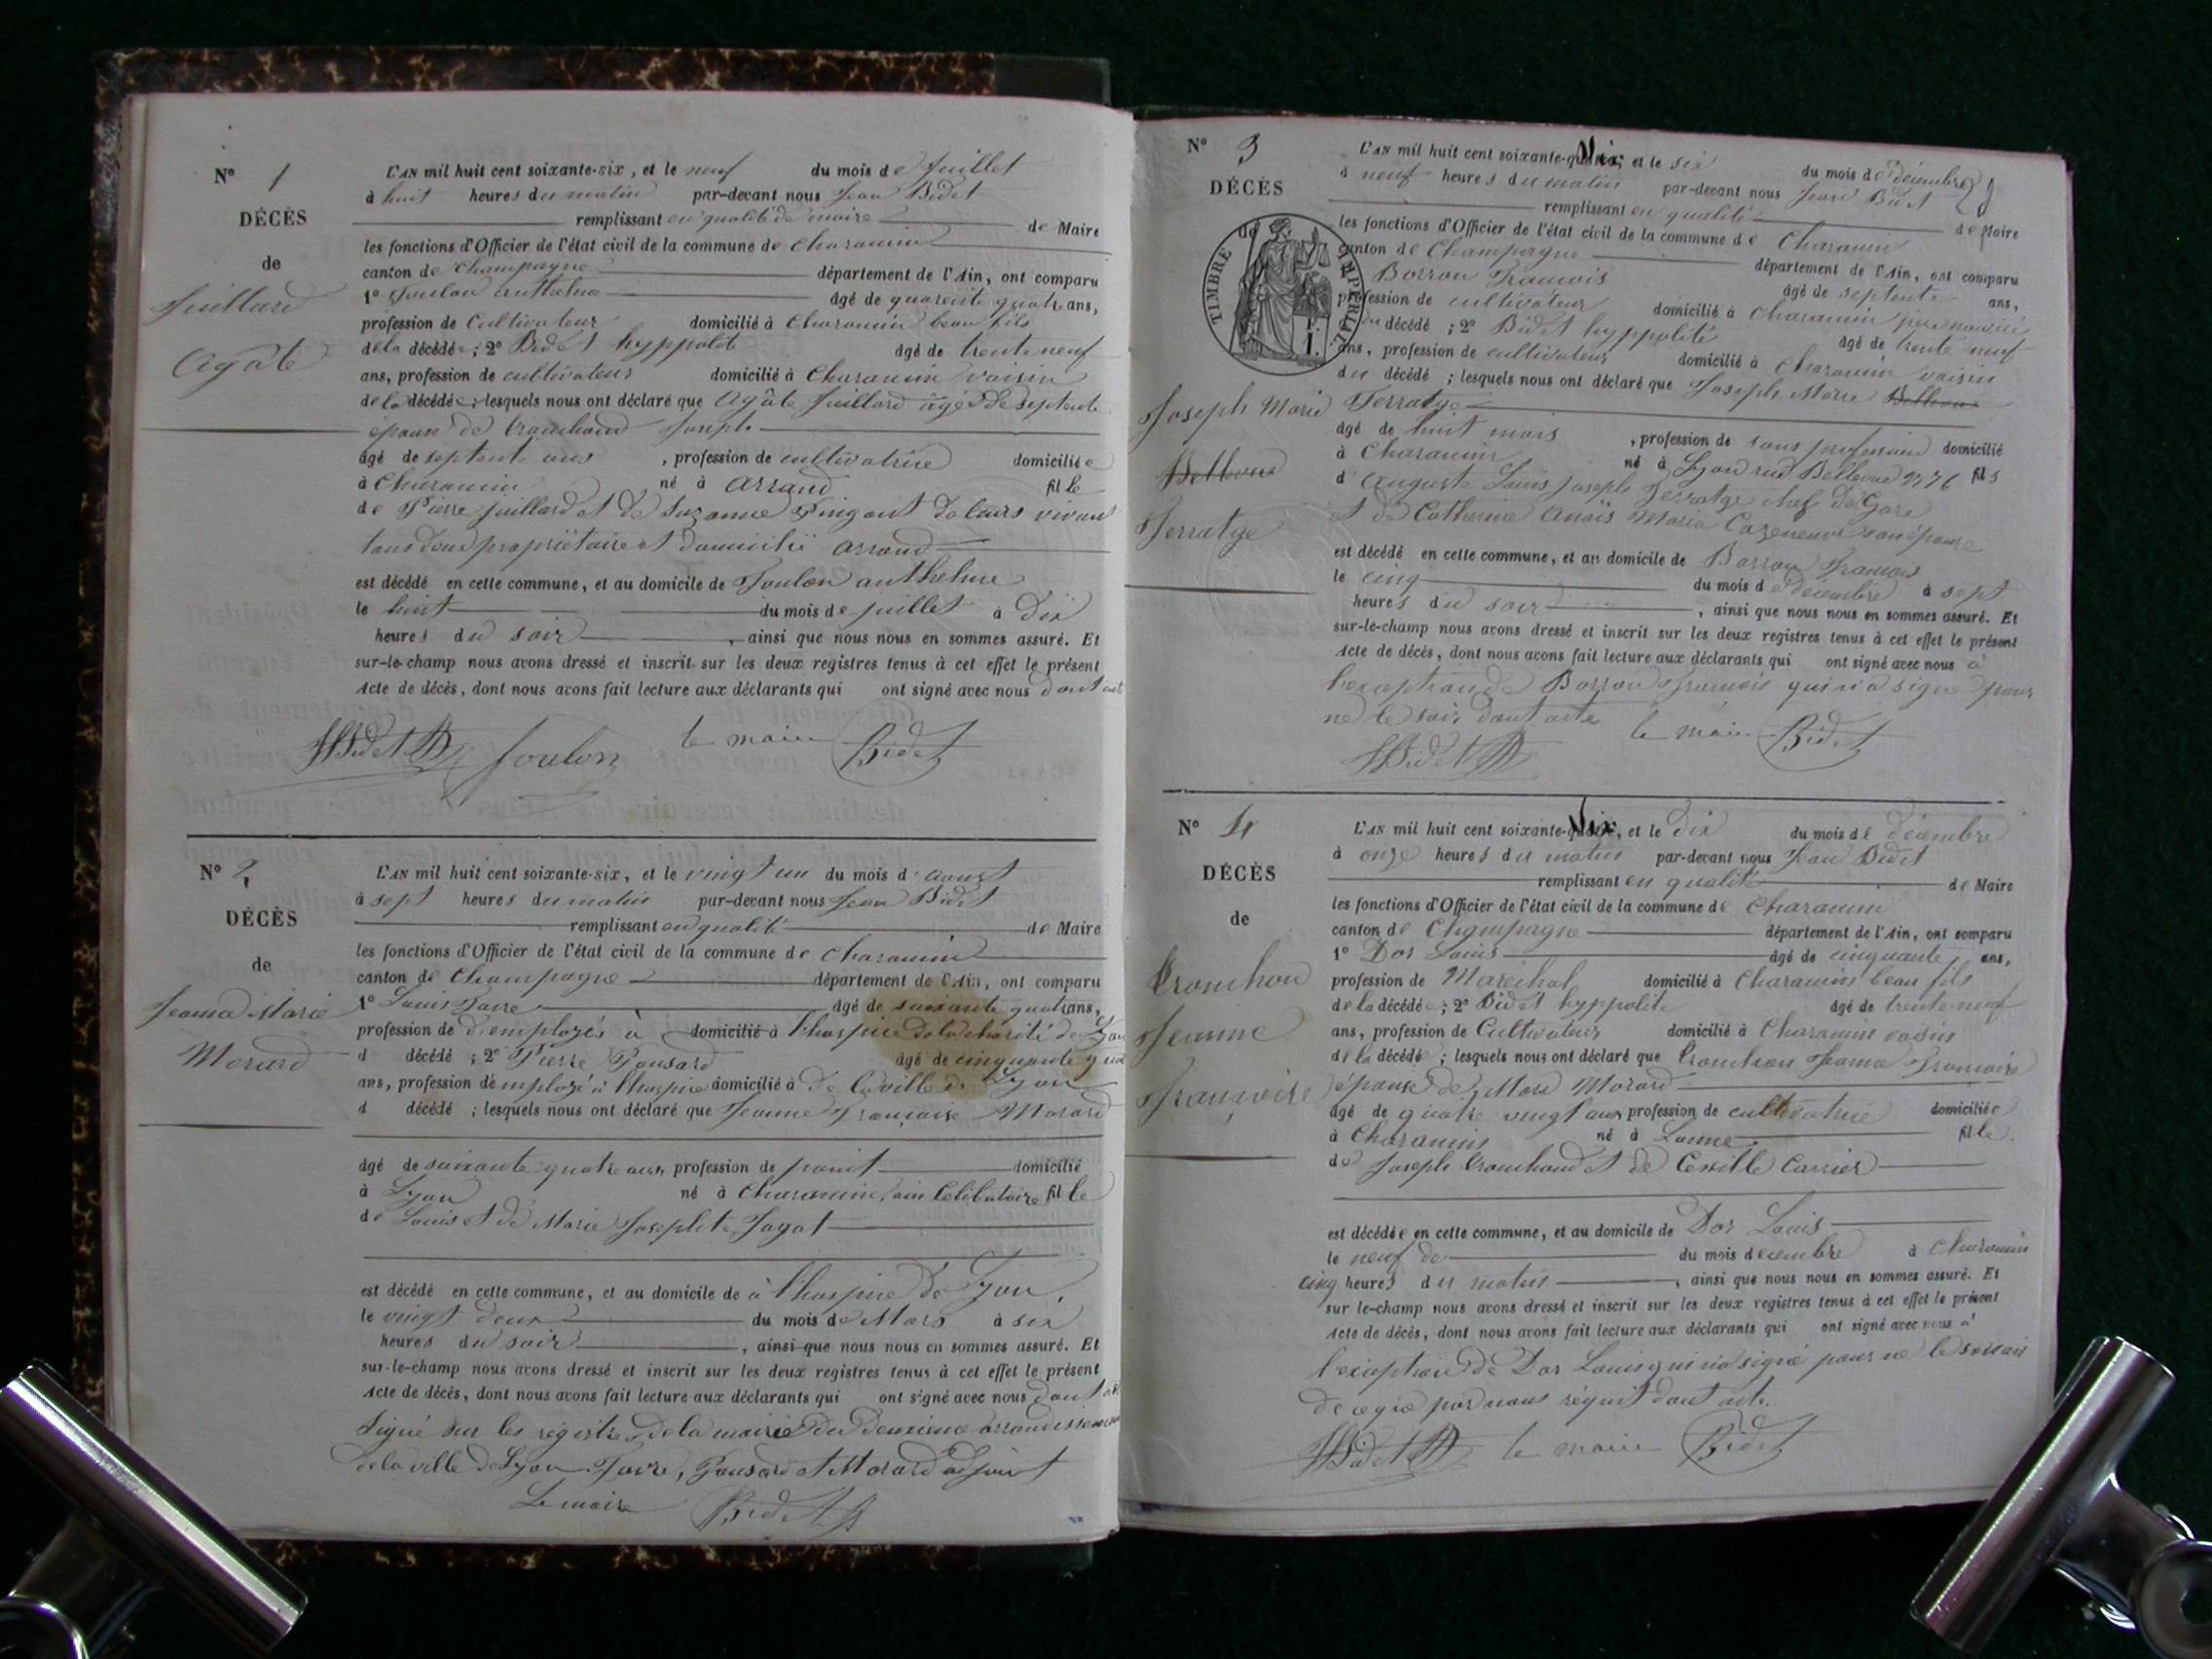 N° 1
DÉCÈS
de
Juillard
Agate
L'AN mil huit cent soixante-six, et le neuf du mois de Juillet
à huit heures du matin par-devant nous Jean Bidet
remplissant en qualité de maire de Maire
les fonctions d'Officier de l'état civil de la commune de Charancin
canton de Champagne département de l'Ain, ont comparu
1° Joulon anthelme âgé de quarente quatr ans,
profession de Cultivateur domicilié à Charancin beau fils
de la décédée ; 2° Bidet hyppolite âgé de trente neuf
ans, profession de cultivateur domicilié à Charancin voisin
de la décédée ; lesquels nous ont déclaré que Agâte Juillard âgé de septente
épouse de Joseph
âgé de septente ans , profession de cultivatrice domiciliée
à Charancin né à Arrand fille
de Pierre Juillard et de Suzanne de leurs vivant
tous deux propriétaire et domicilié arrand
est décédé en cette commune, et au domicile de Joulon anthelme
le huit du mois de juillet à Dix
heures du soir , ainsi que nous nous en sommes assuré. Et
sur-le-champ nous avons dressé et inscrit sur les deux registres tenus à cet effet le présent
Acte de décès, dont nous avons fait lecture aux déclarants qui ont signé avec nous dont act
HBidet Joulon le maire Bidet
N° 2
DÉCÈS
de
Jeanne Marie
Morard
L'AN mil huit cent soixante-six, et le vingt un du mois d'aoust
à sept heures du matin par-devant nous Jean Bidet
remplissant en qualité de Maire
les fonctions d'Officier de l'état civil de la commune de Charancin
canton de Champagne département de l'Ain, ont comparu
1° Louis Favre âgé de soixante quatr ans,
profession de d'employés à domicilié à l'hospice de la charité de Lyon
d décédé ; 2° Pierre Ponsard âgé de cinquante
ans, profession d'employé à l'hospice domicilié à de la ville de Lyon
d décédé ; lesquels nous ont déclaré que Jeanne Françoise Morard
âgé de soixante quatre ans, profession de domicilié
à Lyon né à Charancin, ain Celibataire fille
de Louis et de Marie Josephte Jagot
est décédé en cette commune, et au domicile de à l'hospice de Lyon
le vingt deux du mois de Mars à six
heures du soir , ainsi que nous nous en sommes assuré. Et
sur-le-champ nous avons dressé et inscrit sur les deux registres tenus à cet effet le présent
Acte de décès, dont nous avons fait lecture aux déclarants qui ont signé avec nous dont
Signé sur les registre de la mairie du Deuxieme arrondissement
de la ville de Lyon Favre, Ponsard et Morard adjoint
Le maire Bidet
N° 3
DÉCÈS
de
TIMBRE IMPÉRIAL
F.
1.
Joseph Marie
Bellone
Terratge
L'AN mil huit cent soixante-six et le six du mois de décembre
à neuf heures du matin par-devant nous Jean Bidet
remplissant en qualité de Maire
les fonctions d'Officier de l'état civil de la commune de Charancin
canton de Champagne département de l'Ain, ont comparu
Borron Francois âgé de septente ans,
profession de cultivateur domicilié à Charancin père nouricié
du décédé ; 2° Bidet hyppolite âgé de trente neuf
ans, profession de cultivateur domicilié à Charancin voisin
du décédé ; lesquels nous ont déclaré que Joseph Marie Bellone
Terratge
âgé de huit mois , profession de sans profession domicilié
à Charancin né à Lyon rue Bellone n° 76 fils
d'Auguste Louis Joseph Terratge chef de Gare
et de Catherine Anaïs Maria Cazeneuve son épouse
est décédé en cette commune, et au domicile de Borron Francois
le cinq du mois de décembre à sept
heures du soir , ainsi que nous nous en sommes assuré. Et
sur-le-champ nous avons dressé et inscrit sur les deux registres tenus à cet effet le présent
Acte de décès, dont nous avons fait lecture aux déclarants qui ont signé avec nous à
l'exception de Borron Francois qui n'a signé pour
ne le savoir dont acte le maire Bidet
HBidet
N° 4
DÉCÈS
de
Cronchon
Jeanne
Françoise
L'AN mil huit cent soixante-six, et le dix du mois de décembre
à onze heures du matin par-devant nous Jean Bidet
remplissant en qualité de Maire
les fonctions d'Officier de l'état civil de la commune de Charancin
canton de Champagne département de l'Ain, ont comparu
1° Dor Louis âgé de cinquante ans,
profession de Maréchal domicilié à Charancin beau fils
de la décédée ; 2° Bidet hyppolite âgé de trente neuf
ans, profession de Cultivateur domicilié à Charancin voisin
de la décédé ; lesquels nous ont déclaré que Cronchon Jeanne Francoise
épouse de Morard
âgé de quatre vingt ans profession de cultivatrice domiciliée
à Charancin né à fille
de Joseph et de Carrier
est décédée en cette commune, et au domicile de Dor Louis
le neuf de du mois decembre à Charancin
cinq heures du matin , ainsi que nous nous en sommes assuré. Et
sur le-champ nous avons dressé et inscrit sur les deux registres tenus à cet effet le présent
Acte de décès, dont nous avons fait lecture aux déclarants qui ont signé avec nous à
l'exception de Dor Louis qui n'a signé pour ne le savoir
de ce que par nous réquit dont acte.
HBidet le maire Bidet